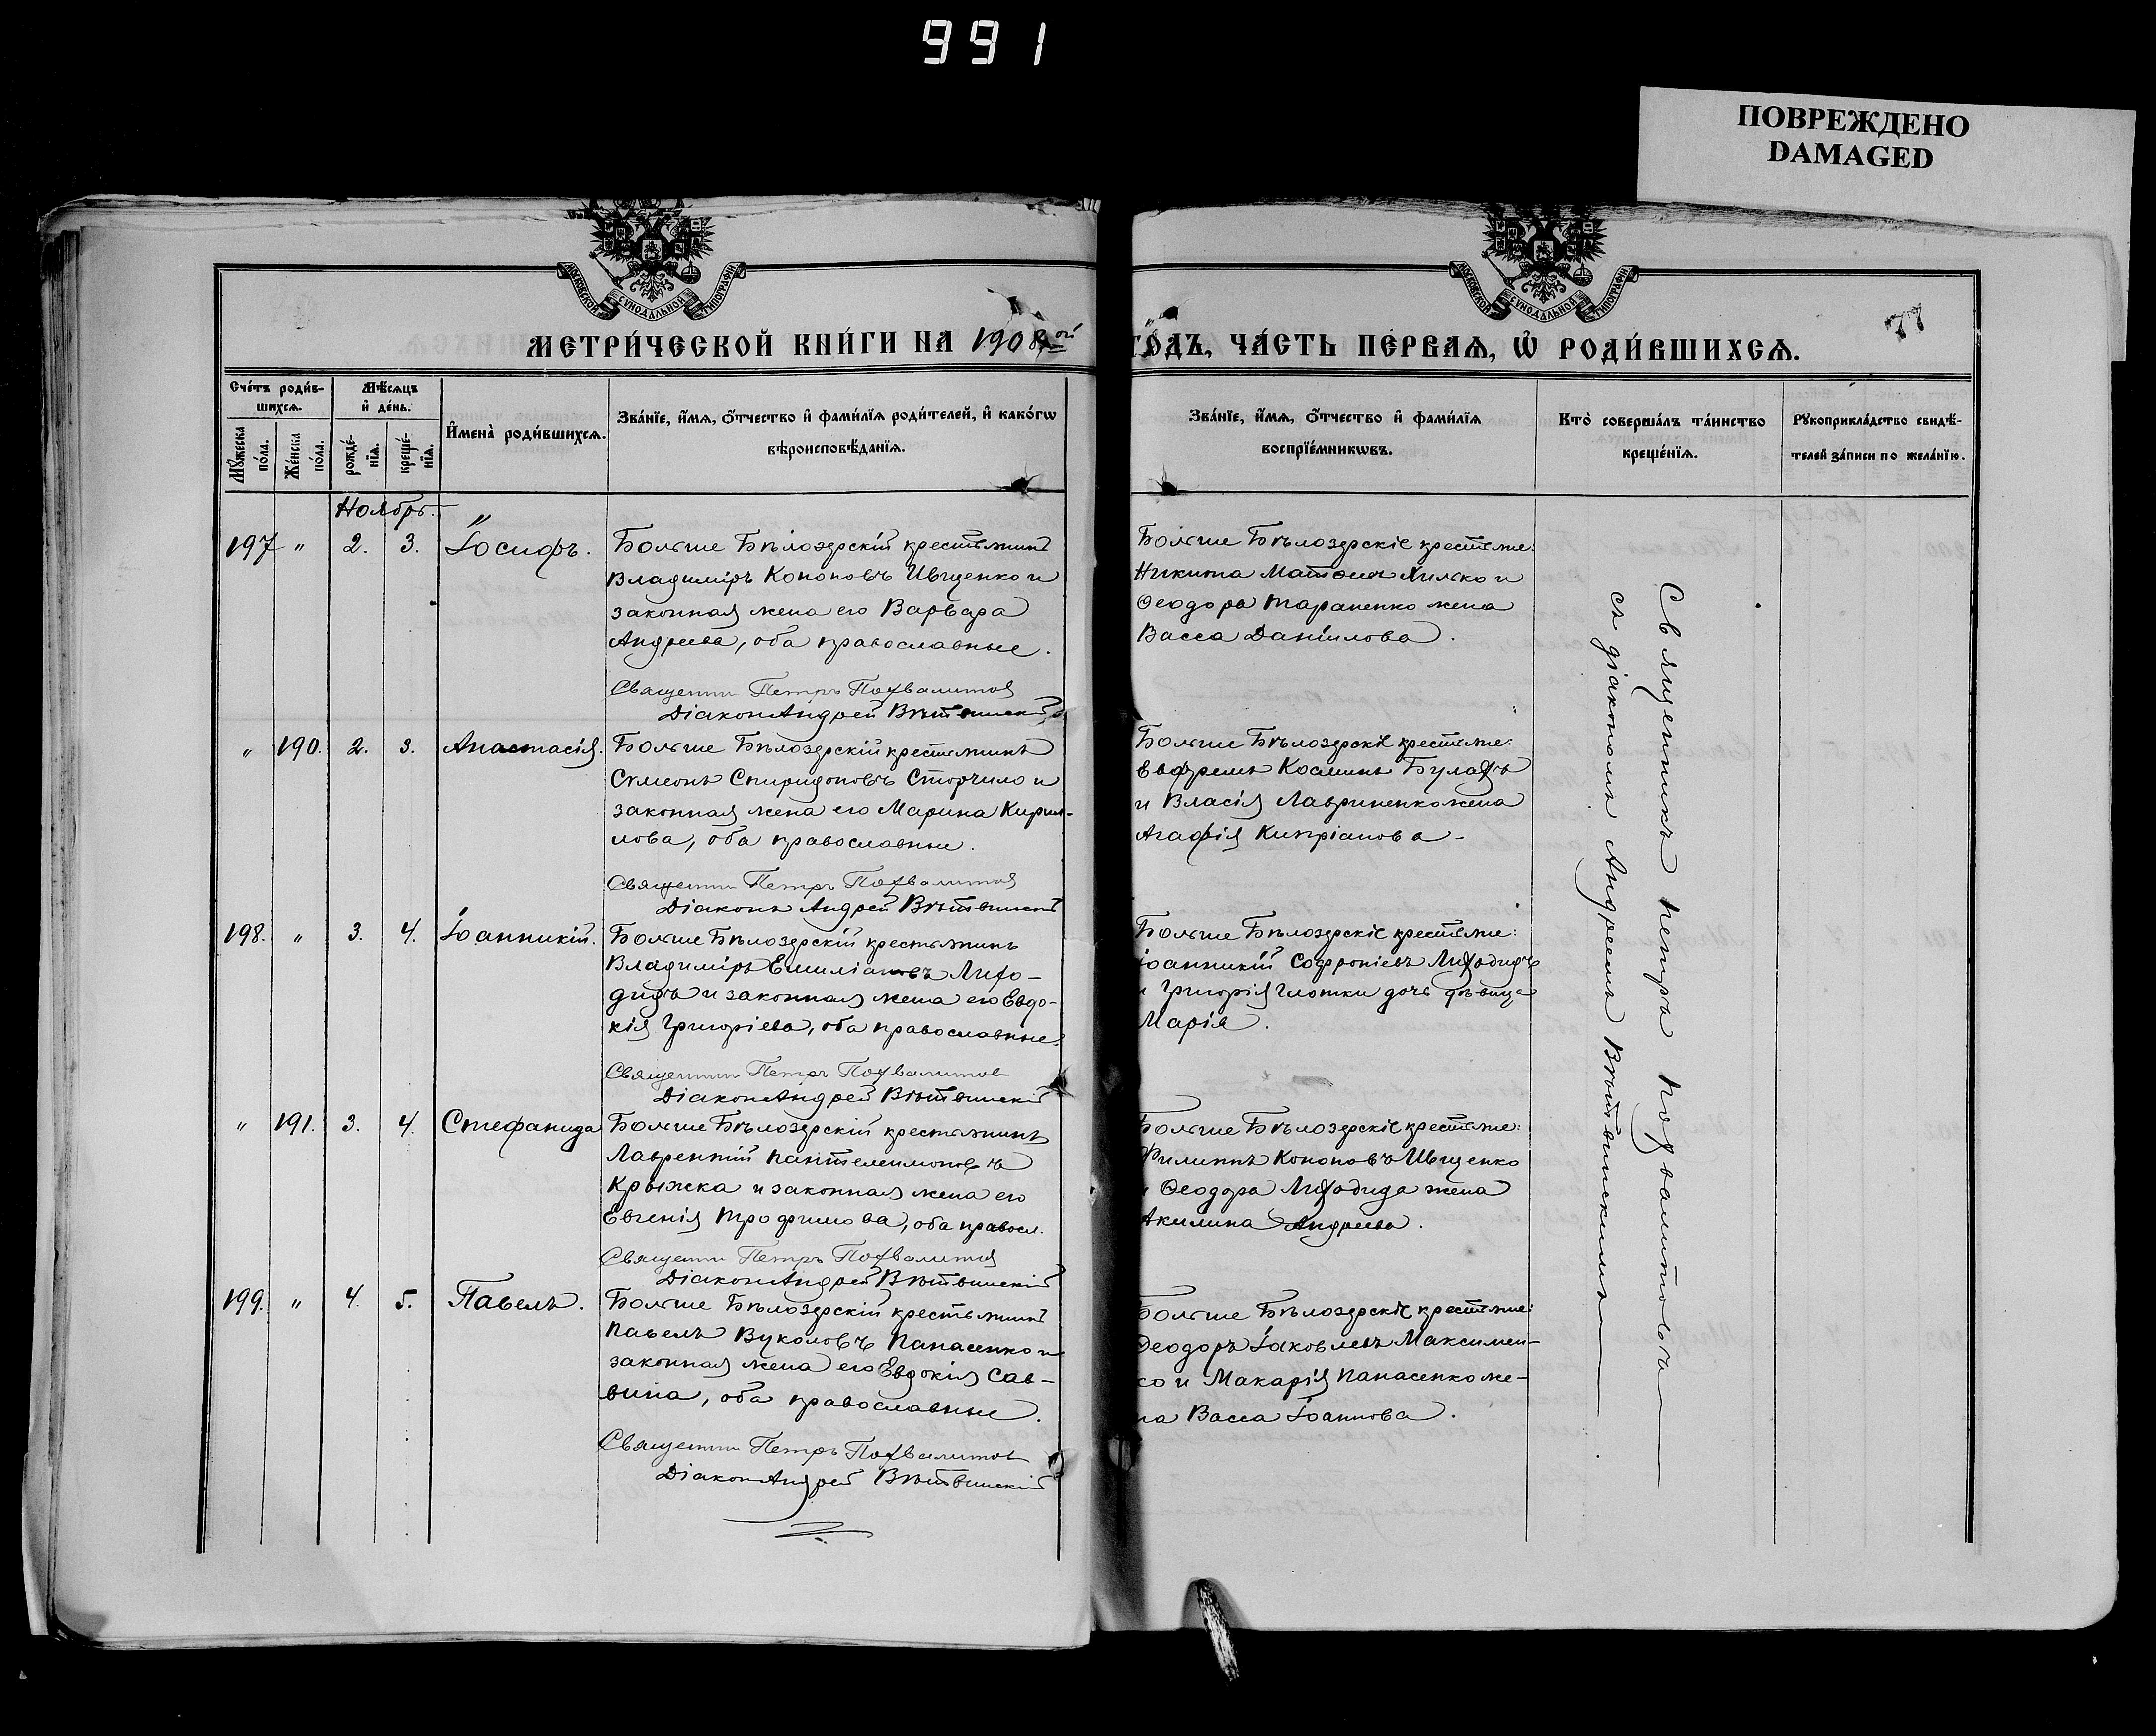 991
ПОВРЕЖДЕНО
DAMAGED
МОСКОВСКОЙ СѴНОДАЛЬНОЙ ТИПОГРАФІИ
МОСКОВСКОЙ СѴНОДАЛЬНОЙ ТИПОГРАФІИ
МЕТРИ́ЧЕСКОЙ КНИ́ГИ НА 1908ой
ГО́ДЪ, ЧА́СТЬ ПЕ́РВАѦ, Ѡ҆ РОДИ́ВШИХСѦ.
77
Сче́тъ роди́в-
шихсѧ.
Мѣ́сѧцъ
и҆ де́нь.
Мꙋ́жеска
по́ла.
Же́нска
по́ла.
рожде́-
нїѧ.
креще́-
нїѧ.
И҆мена̀ роди́вшихсѧ.
Зва́нїе, и҆́мѧ, ѻ҆́тчество и҆ фами́лїѧ роди́телей, и҆ како́гѡ
вѣроисповѣ́данїѧ.
Зва́нїе, и҆́мѧ, ѻ҆́тчество и҆ фами́лїѧ
воспрїе́мникѡвъ.
Кто̀ соверша́лъ та́инство
креще́нїѧ.
Рꙋкоприкла́дство свидѣ́-
телей за́писи по жела́нїю.
Ноябрь.
197 " 2. 3. Іосифъ.
Больше Бѣлозерскій крестьянинъ
Владиміръ Кононовъ Ивщенко и
законная жена его Варвара
Андреева, оба православные.
Священни Петръ Похвалитов
Діаконъ Андрей Вѣтвинскій
Больше Бѣлозерскіе крестьяне:
Никита Матѳеевъ Хилько и
Ѳеодора Тараненко жена
Васса Даніилова.
" 190. 2. 3. Анастасія.
Больше Бѣлозерскій крестьянинъ
Сѵмеонъ Спиридоновъ Сторчило и
законная жена его Марина Кирил-
лова, оба православные.
Священни Петръ Похвалитов
Діаконъ Андрей Вѣтвинскій
Больше Бѣлозерскіе крестьяне:
Евфремъ Косминъ Булахъ
и Власія Лавриненко жена
Агафія Кипріанова
198. " 3. 4. Іоанникій.
Больше Бѣлозерскій крестьянинъ
Владиміръ Емиліановъ Лихо-
дидъ и законная жена его Евдо-
кія Григоріева, оба православные.
Священни Петръ Похвалитов
Діаконъ Андрей Вѣтвинскій
Больше Бѣлозерскіе крестьяне:
Іоанникій Софроніевъ Лиходидъ
и Григорія Глотки дочь дѣвица
Марія.
" 191. 3. 4. Стефанида
Больше Бѣлозерскій крестьянинъ
Лаврентій Пантелеимоновъ
Крыжка и законная жена его
Евгенія Трофимова, оба правосл.
Священни Петръ Похвалитов
Діаконъ Андрей Вѣтвинскій
Больше Бѣлозерскіе крестьяне:
Филиппъ Кононовъ Ивщенко
и Ѳеодора Лиходида жена
Акилина Андреева.
199. " 4. 5. Павелъ.
Больше Бѣлозерскій крестьянинъ
Павелъ Вуколовъ Панасенко и
законная жена его Евдокія Сав-
вина, оба православные.
Священни Петръ Похвалитов
Діаконъ Андрей Вѣтвинскій
Больше Бѣлозерскіе крестьяне:
Ѳеодоръ Іаковлевъ Максимен-
ко и Макарія Панасенко же-
на Васса Іоаннова.
Священникъ Петръ Похвалитовъ
съ діакономъ Андреемъ Вѣтвинскимъ